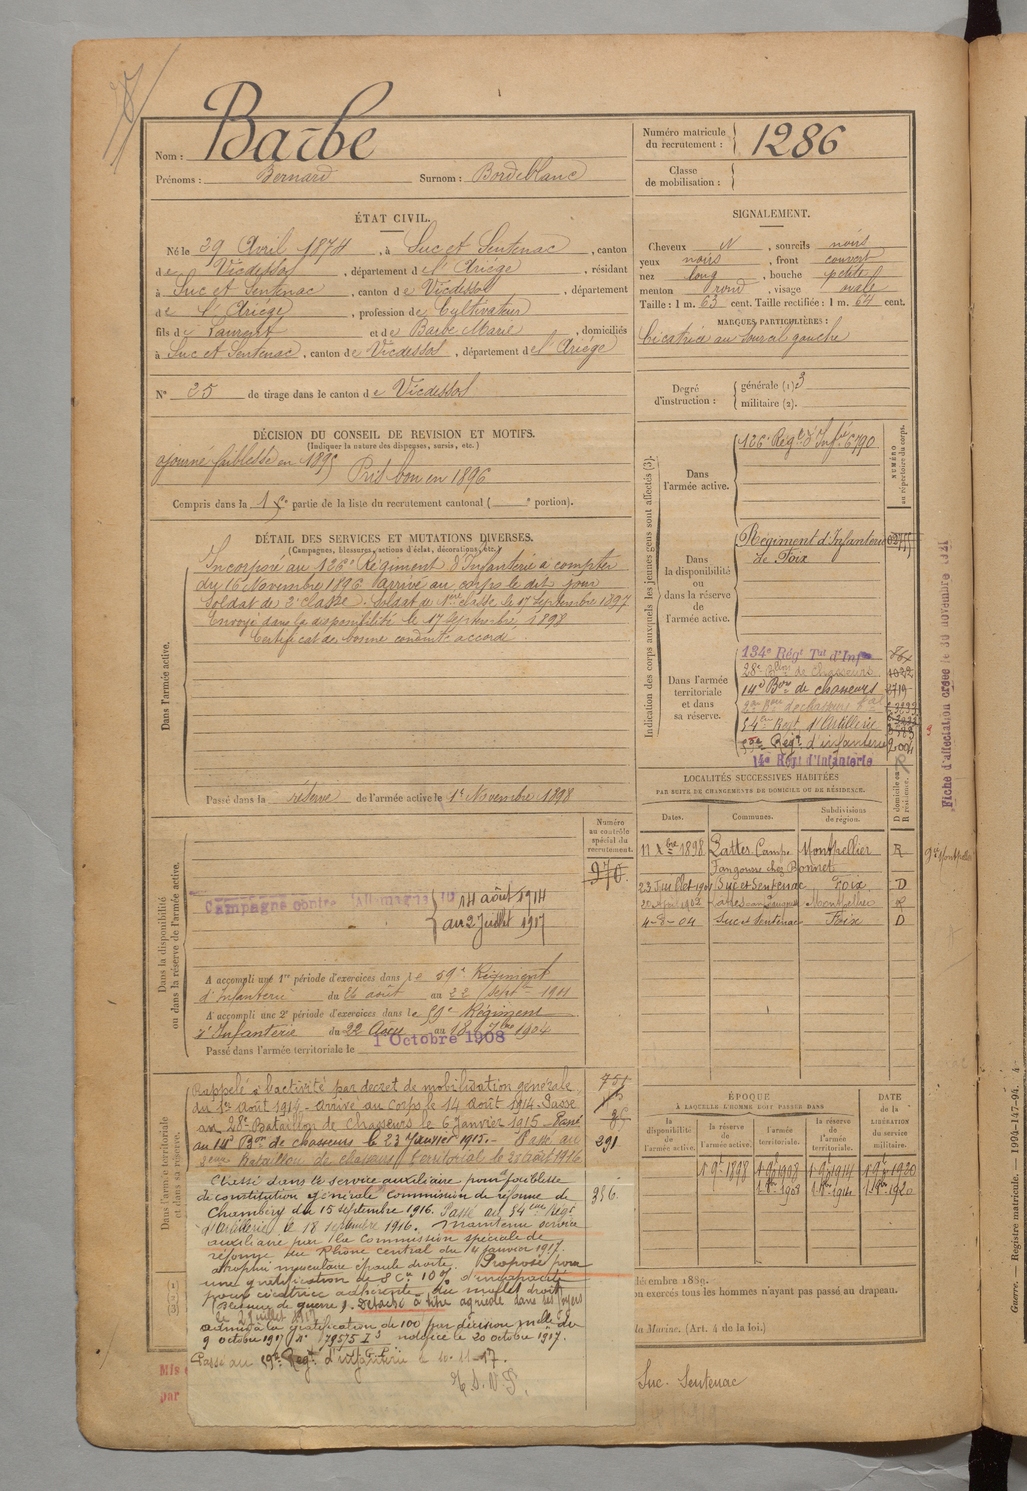 Nom : Barbe
Prénoms : Bernard Surnom : Bordeblanc
Numéro matricule du recrutement : 1286
Classe de mobilisation :
ÉTAT CIVIL.
Né le 29 Avril 1874, à Suc et Sentenac, canton
de Vicdessos, département de l'Ariège, résidant
à Suc et Sentenac, canton de Vicdessos, département
de l'Ariège, profession de Cultivateur
fils de Laurent et de Barbe Marie, domiciliés
à Suc et Sentenac, canton de Vicdessos, département de l'Ariège
N° 25 de tirage dans le canton de Vicdessos
SIGNALEMENT.
Cheveux N, sourcils noirs
yeux noirs, front couvert
nez long, bouche petite
menton rond, visage ovale
Taille : 1 m. 63 cent. Taille rectifiée : 1 m. 64 cent.
MARQUES PARTICULIÈRES :
Cicatrice au sourcil gauche
Degré d'instruction : générale (1) 3
militaire (2).
DÉCISION DU CONSEIL DE REVISION ET MOTIFS.
(Indiquer la nature des dispenses, sursis, etc.)
ajourné faiblesse en 1895 Pris bon en 1896
Compris dans la 1re partie de la liste du recrutement cantonal ( e portion).
DÉTAIL DES SERVICES ET MUTATIONS DIVERSES.
(Campagnes, blessures, actions d'éclat, décorations, etc.)
Dans l'armée active.
Incorporé au 126e Régiment d'Infanterie à compter
du 16 Novembre 1896 Arrivé au corps le dit jour
Soldat de 2e classe. Soldat de 1ère classe le 17 Septembre 1897
Envoyé dans la disponibilité le 17 Septembre 1898
Certificat de bonne conduite accordé
Passé dans la réserve de l'armée active le 1er Novembre 1898
Indication des corps auxquels les jeunes gens sont affectés (3).
NUMÉRO au répertoire du corps.
Dans l'armée active.
126e Régt d'Infie 6790
Dans la disponibilité ou dans la réserve de l'armée active.
Régiment d'Infanterie
de Foix
Dans l'armée territoriale et dans sa réserve.
134e Régt Tal d'Infie
28e Bon de chasseurs
14e Bon de chasseurs 2719
54e Regt d'Artillerie
Régt d'infanterie 2004
14e Régt d'Infanterie
Fiche d'affectation créée le 30 novembre 1921
LOCALITÉS SUCCESSIVES HABITÉES
PAR SUITE DE CHANGEMENTS DE DOMICILE OU DE RÉSIDENCE.
Dates. Communes. Subdivisions de région. D domicile ou R résidence.
11 Xbre 1898 Lattes Campe Montpellier R
Fangouse chez Bonnet
23 Juillet 1901 Suc et Sentenac Foix D
1902 Lattes Montpellier R
4-8-04 Suc et Sentenac Foix D
Dans la disponibilité ou dans la réserve de l'armée active.
Numéro au contrôle spécial du recrutement.
970
Campagne contre l'Allemagne du 14 août 1914
au 2 Juillet 1917
A accompli une 1re période d'exercices dans le 59e Régiment
d'Infanterie du 26 août au 22 Sept 1901
A accompli une 2e période d'exercices dans le 59e Régiment
d'Infanterie du 22 Août au 18 7bre 1904
Passé dans l'armée territoriale le 1 Octobre 1908
Dans l'armée territoriale et dans sa réserve.
Rappelé à l'activité par décret de mobilisation générale
du 1er août 1914. Arrivé au Corps le 14 août 1914. Passé
au 28e Bataillon de chasseurs le 6 Janvier 1915. Passé
au 14e Bon de chasseurs le 23 Janvier 1915. Passé au
Bataillon de chasseurs territorial le 1916
291
Classé dans le service auxiliaire pour faiblesse
de constitution générale Commission de réforme de
Chambéry du 15 septembre 1916. Passé au 54eme Régt
d'Artillerie le 18 septembre 1916. Maintenu service
auxiliaire par la Commission spéciale de
réforme du Rhône central du 4 janvier 1917.
atrophie musculaire épaule droite. Proposé pour
une gratification de 8e Cie 10% d'incapacité
pour cicatrice adhérente du mollet droit
Blessure de guerre. Détaché à titre agricole dans ses foyers
le 2 Juillet 1917
Admis à la gratification de 100 f par décision mlle du
9 octobre 1917 (N° 79575 I3 notifiée le 20 octobre 1917.
Passé au Régt d'infanterie le 10-11-17.
386
ÉPOQUE
À LAQUELLE L'HOMME DOIT PASSER DANS
la disponibilité de l'armée active. la réserve de l'armée active. l'armée territoriale. la réserve de l'armée territoriale.
DATE de la LIBÉRATION du service militaire.
1 9bre 1898 1 9bre 1908 1 9bre 1914 1 9bre 1920
1 8bre 1908 1 8bre 1914 1 8bre 1920
décembre 1889.
on exercés tous les hommes n'ayant pas passé au drapeau.
la Marine. (Art. 4 de la loi.)
Suc-Sentenac
Mis
par
Guerre. — Registre matricule. — 1994-147-94.